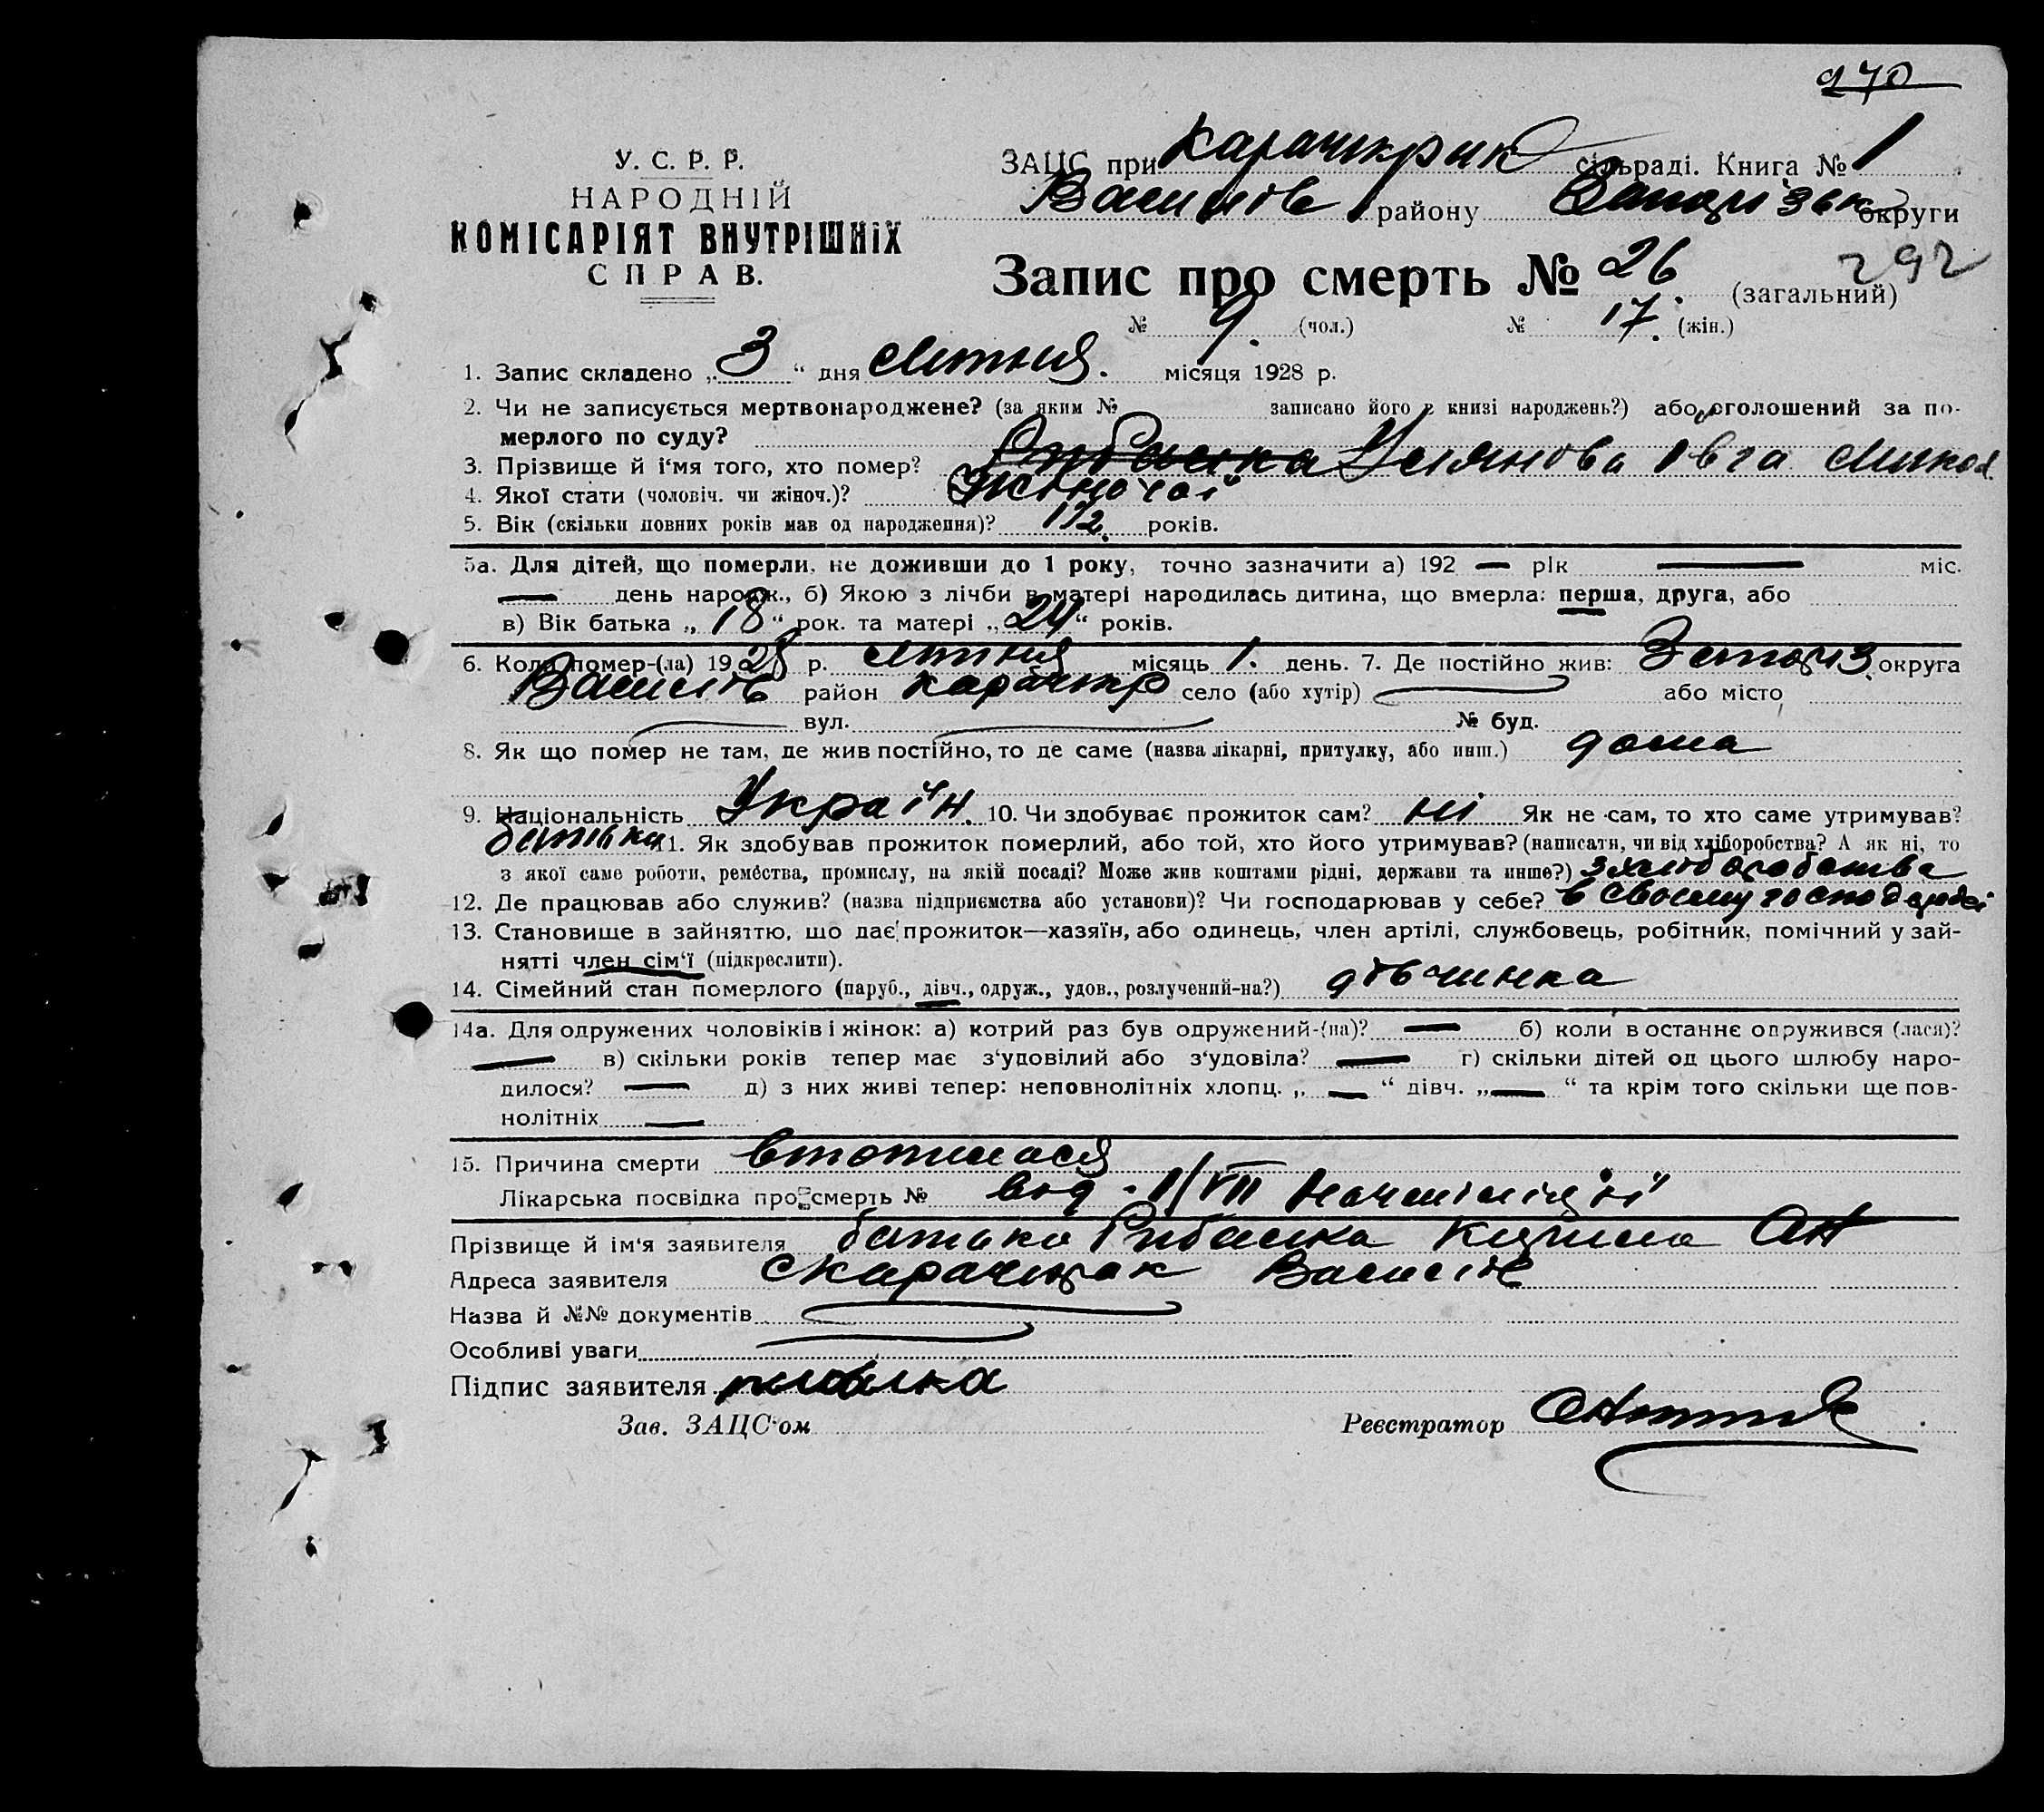 270
У. С. Р. Р.
НАРОДНІЙ
КОМІСАРІЯТ ВНУТРІШНІХ
СПРАВ.
ЗАЦС при сільраді. Книга № 1
Василів району Запорізьк округи
292
Запис про смерть № 26. (загальний)
№ 9. (чол.) № 17. (жін.)
1. Запис складено „3“ дня липня. місяця 1928 р.
2. Чи не записується мертвонароджене? (за яким № записано його в книзі народжень?) або оголошений за по-
мерлого по суду?
3. Прізвище й ім'я того, хто помер? Рибалка
4. Якої стати (чоловіч. чи жіноч.)? Жіночої
5. Вік (скільки повних років мав од народження)? 1½. років.
5а. Для дітей, що померли, не доживши до 1 року, точно зазначити а) 192 — рік — міс.
— день народж., б) Якою з лічби в матері народилась дитина, що вмерла: перша, друга, або
в) Вік батька „18“ рок. та матері „24“ років.
6. Коли помер-(ла) 1928 р. липня місяць 1. день. 7. Де постійно жив: Запоріз. округа
Василів район село (або хутір) або місто
вул. № буд.
8. Як що помер не там, де жив постійно, то де саме (назва лікарні, притулку, або инш.) дома
9. Національність Україн. 10. Чи здобуває прожиток сам? ні Як не сам, то хто саме утримував?
батьки 11. Як здобував прожиток померлий, або той, хто його утримував? (написати, чи від хліборобства? А як ні, то
з якої саме роботи, ремества, промислу, на якій посаді? Може жив коштами рідні, держави та инше?) з хліборобства
12. Де працював або служив? (назва підприємства або установи)? Чи господарював у себе? в своему господарстві
13. Становище в зайняттю, що дає прожиток—хазяїн, або одинець, член артілі, службовець, робітник, помічний у зай-
нятті член сім'ї (підкреслити).
14. Сімейний стан померлого (паруб., дівч., одруж., удов., розлучений-на?) дівчинка
14а. Для одружених чоловіків і жінок: а) котрий раз був одружений-(на)? — б) коли в останнє одружився (лася)?
— в) скільки років тепер має з'удовілий або з'удовіла? — г) скільки дітей од цього шлюбу наро-
дилося? — д) з них живі тепер: неповнолітніх хлопц. „—“ дівч. „—“ та крім того скільки ще пов-
нолітніх —
15. Причина смерти втопилася
Лікарська посвідка про смерть № від 1/VII
Прізвище й ім'я заявителя батько Рибалка
Адреса заявителя Василів
Назва й №№ документів
Особливі уваги
Підпис заявителя рибалка
Зав. ЗАЦС'ом Реєстратор